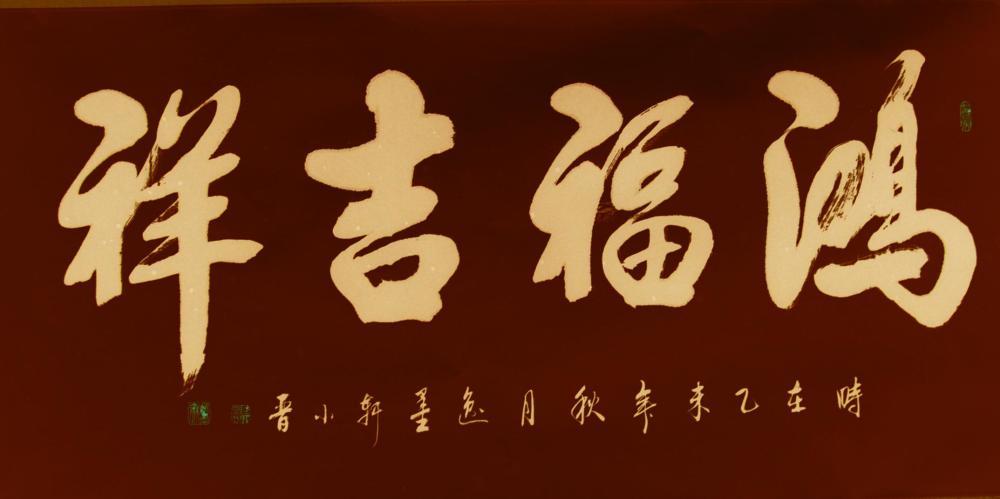 鴻福吉祥
時在乙未年秋月逸墨軒小晋